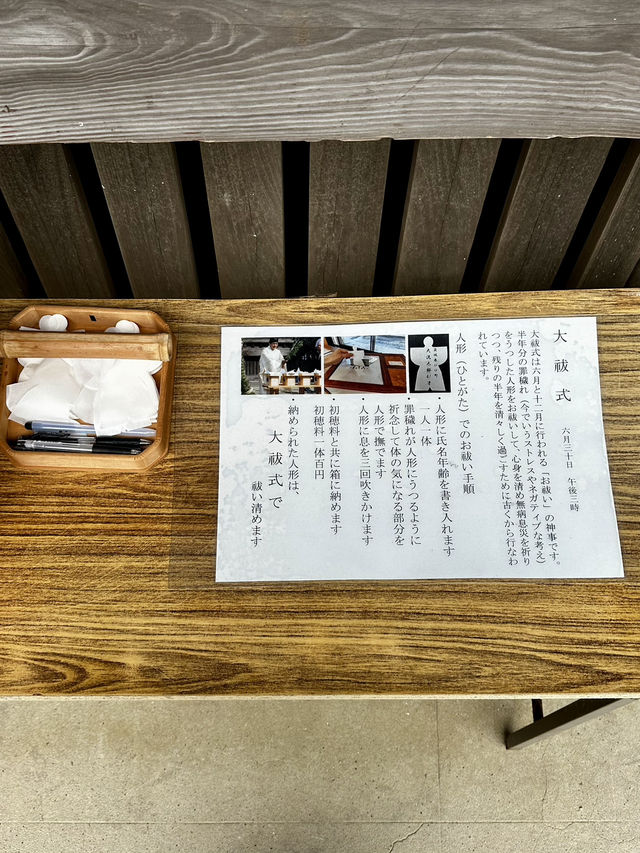 大祓式
六月三十日　午後三時
大祓式は六月と十二月に行われる「お祓い」の神事です。
半年分の罪穢れ（今でいうストレスやネガティブな考え）
をうつした人形をお祓いして、心身を清め無病息災を祈り
つつ、残りの半年を清々しく過ごすために古くから行なわ
れています。
人形（ひとがた）でのお祓い手順
・人形に氏名年齢を書き入れます
一人一体
・罪穢れが人形にうつるように
祈念して体の気になる部分を
人形で撫でます
・人形に息を三回吹きかけます
・初穂料と共に箱に納めます
初穂料一体百円
・納められた人形は、
大祓式で
祓い清めます